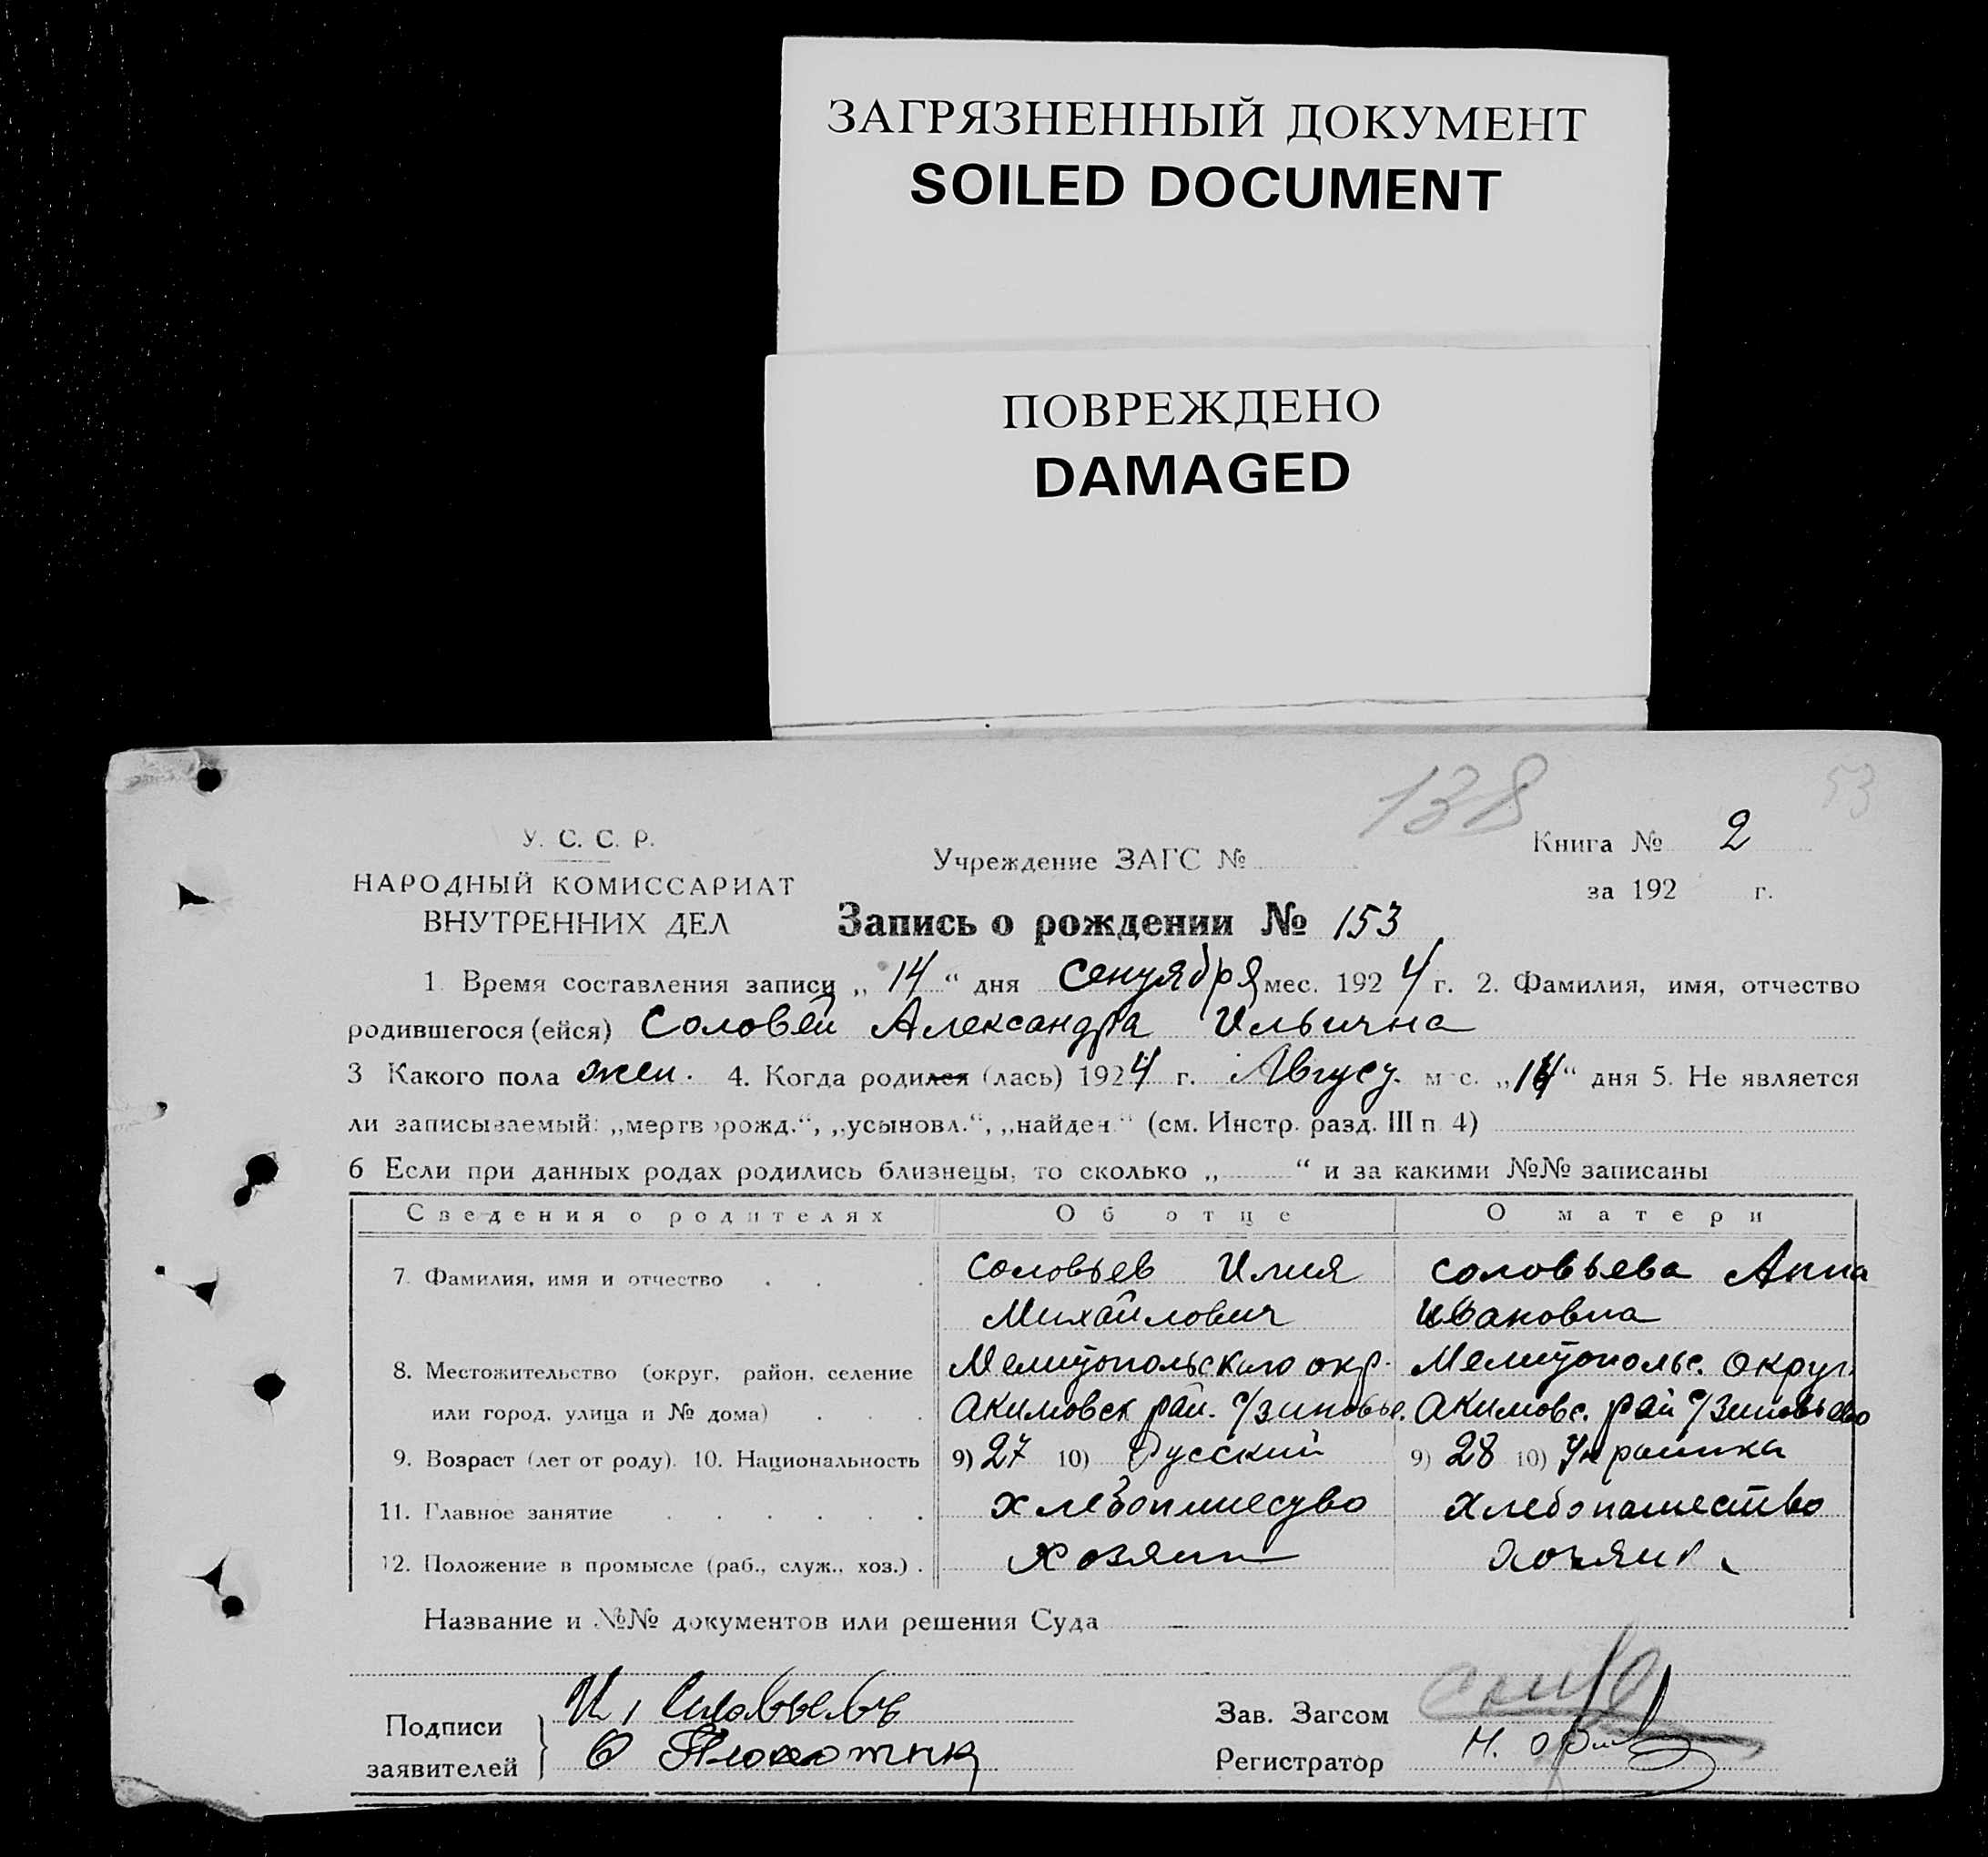 ЗАГРЯЗНЕННЫЙ ДОКУМЕНТ
SOILED DOCUMENT
ПОВРЕЖДЕНО
DAMAGED
138
53
У. С. С. Р.
НАРОДНЫЙ КОМИССАРИАТ
ВНУТРЕННИХ ДЕЛ
Учреждение ЗАГС №
Книга № 2
за 192 г.
Запись о рождении № 153
1. Время составления записи „ 14 “ дня Сентября мес. 1924 г. 2. Фамилия, имя, отчество
родившегося (ейся) Соловей Александра Ильична
3 Какого пола жен. 4. Когда родился (лась) 1924 г. Август. мес. „14“ дня 5. Не является
ли записываемый: „мертворожд.“, „усыновл.“, „найден“ (см. Инстр. разд. III п. 4)
6 Если при данных родах родились близнецы, то сколько „ “ и за какими №№ записаны
Сведения о родителях Об отце О матери
7. Фамилия, имя и отчество . . . Соловьев Илия Соловьева Анна
Михайлович Ивановна
8. Местожительство (округ, район, селение Мелитопольского окр. Мелитопольс. Округ.
или город, улица и № дома) . . . Акимовск рай. с/зиновье. Акимовс. рай с/Зиновьево
9. Возраст (лет от роду). 10. Национальность 9) 27 10) Русский 9) 28 10) Украинка
11. Главное занятие . . . . . . Хлебопашество Хлебопашество
12. Положение в промысле (раб., служ., хоз.) . Хозяин
Название и №№ документов или решения Суда
Подписи заявителей И. Соловьевъ
Зав. Загсом
Регистратор Н.